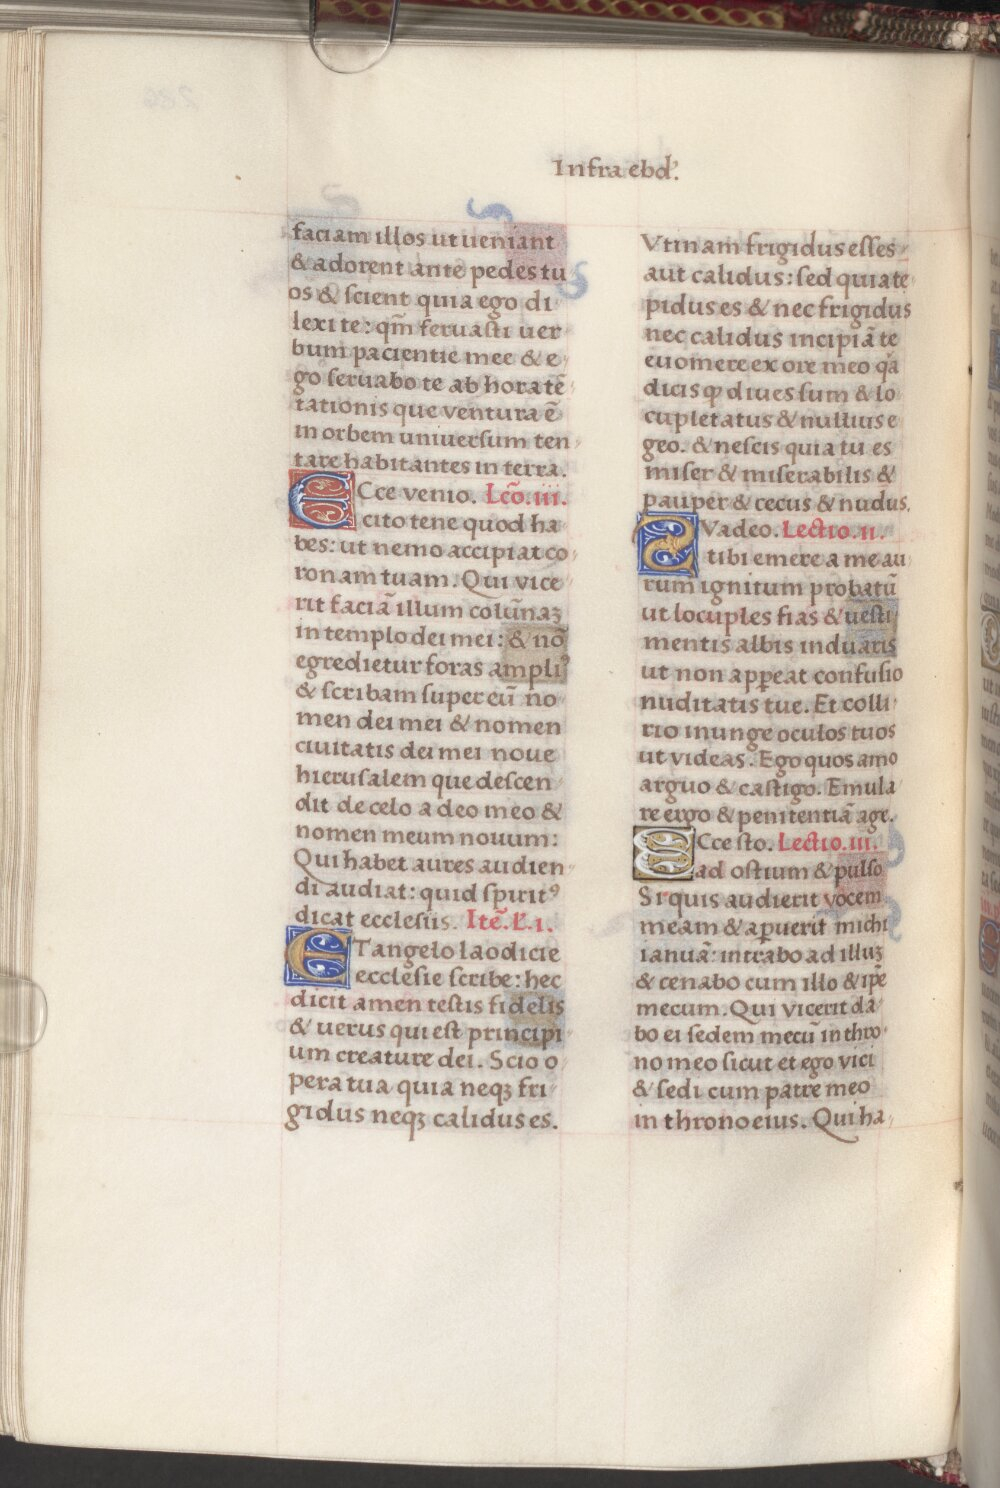 Infra ebd'.
faciam illos ut ueniant
& adorent ante pedes tu
os & scient quia ego di
lexi te: qm̃ seruasti uer
bum pacientie mee & e
go seruabo te ab hora tẽ
tationis que uentura ẽ
in orbem uniuersum ten
tare habitantes in terra.
Ecce venio. Lc̃o. iii.
cito tene quod ha
bes: ut nemo accipiat co
ronam tuam. Qui vice
rit faciã illum colũnaꝫ
in templo dei mei: & nõ
egredietur foras ampliꝰ
& scribam super eũ no
men dei mei & nomen
ciuitatis dei mei noue
hierusalem que descen
dit de celo a deo meo &
nomen meum nouum:
Qui habet aures audien
di audiat: quid spiritꝰ
dicat ecclesiis. Itẽ. L'. i.
Et angelo laodicie
ecclesie scribe: hec
dicit amen testis fidelis
& uerus qui est principi
um creature dei. Scio o
pera tua quia neqꝫ fri
gidus neqꝫ calidus es.
Vtinam frigidus esses
aut calidus: sed quia te
pidus es & nec frigidus
nec calidus incipiã te
euomere ex ore meo qã
dicis ꝙ diues sum & lo
cupletatus & nullius e
geo. & nescis quia tu es
miser & miserabilis &
pauper & cecus & nudus.
Suadeo. Lectio. ii.
tibi emere a me au
rum ignitum probatũ
ut locuples fias & uesti
mentis albis induaris
ut non apꝑeat confusio
nuditatis tue. Et colli
rio inunge oculos tuos
ut videas. Ego quos amo
arguo & castigo. Emula
re ergo & penitentiã age.
Ecce sto. Lectio. iii.
ad ostium & pulso
Si quis audierit vocem
meam & aꝑuerit michi
ianuã: intrabo ad illuꝫ
& cenabo cum illo & ip̃e
mecum. Qui vicerit da
bo ei sedem mecũ in thro
no meo sicut et ego vici
& sedi cum patre meo
in throno eius. Qui ha